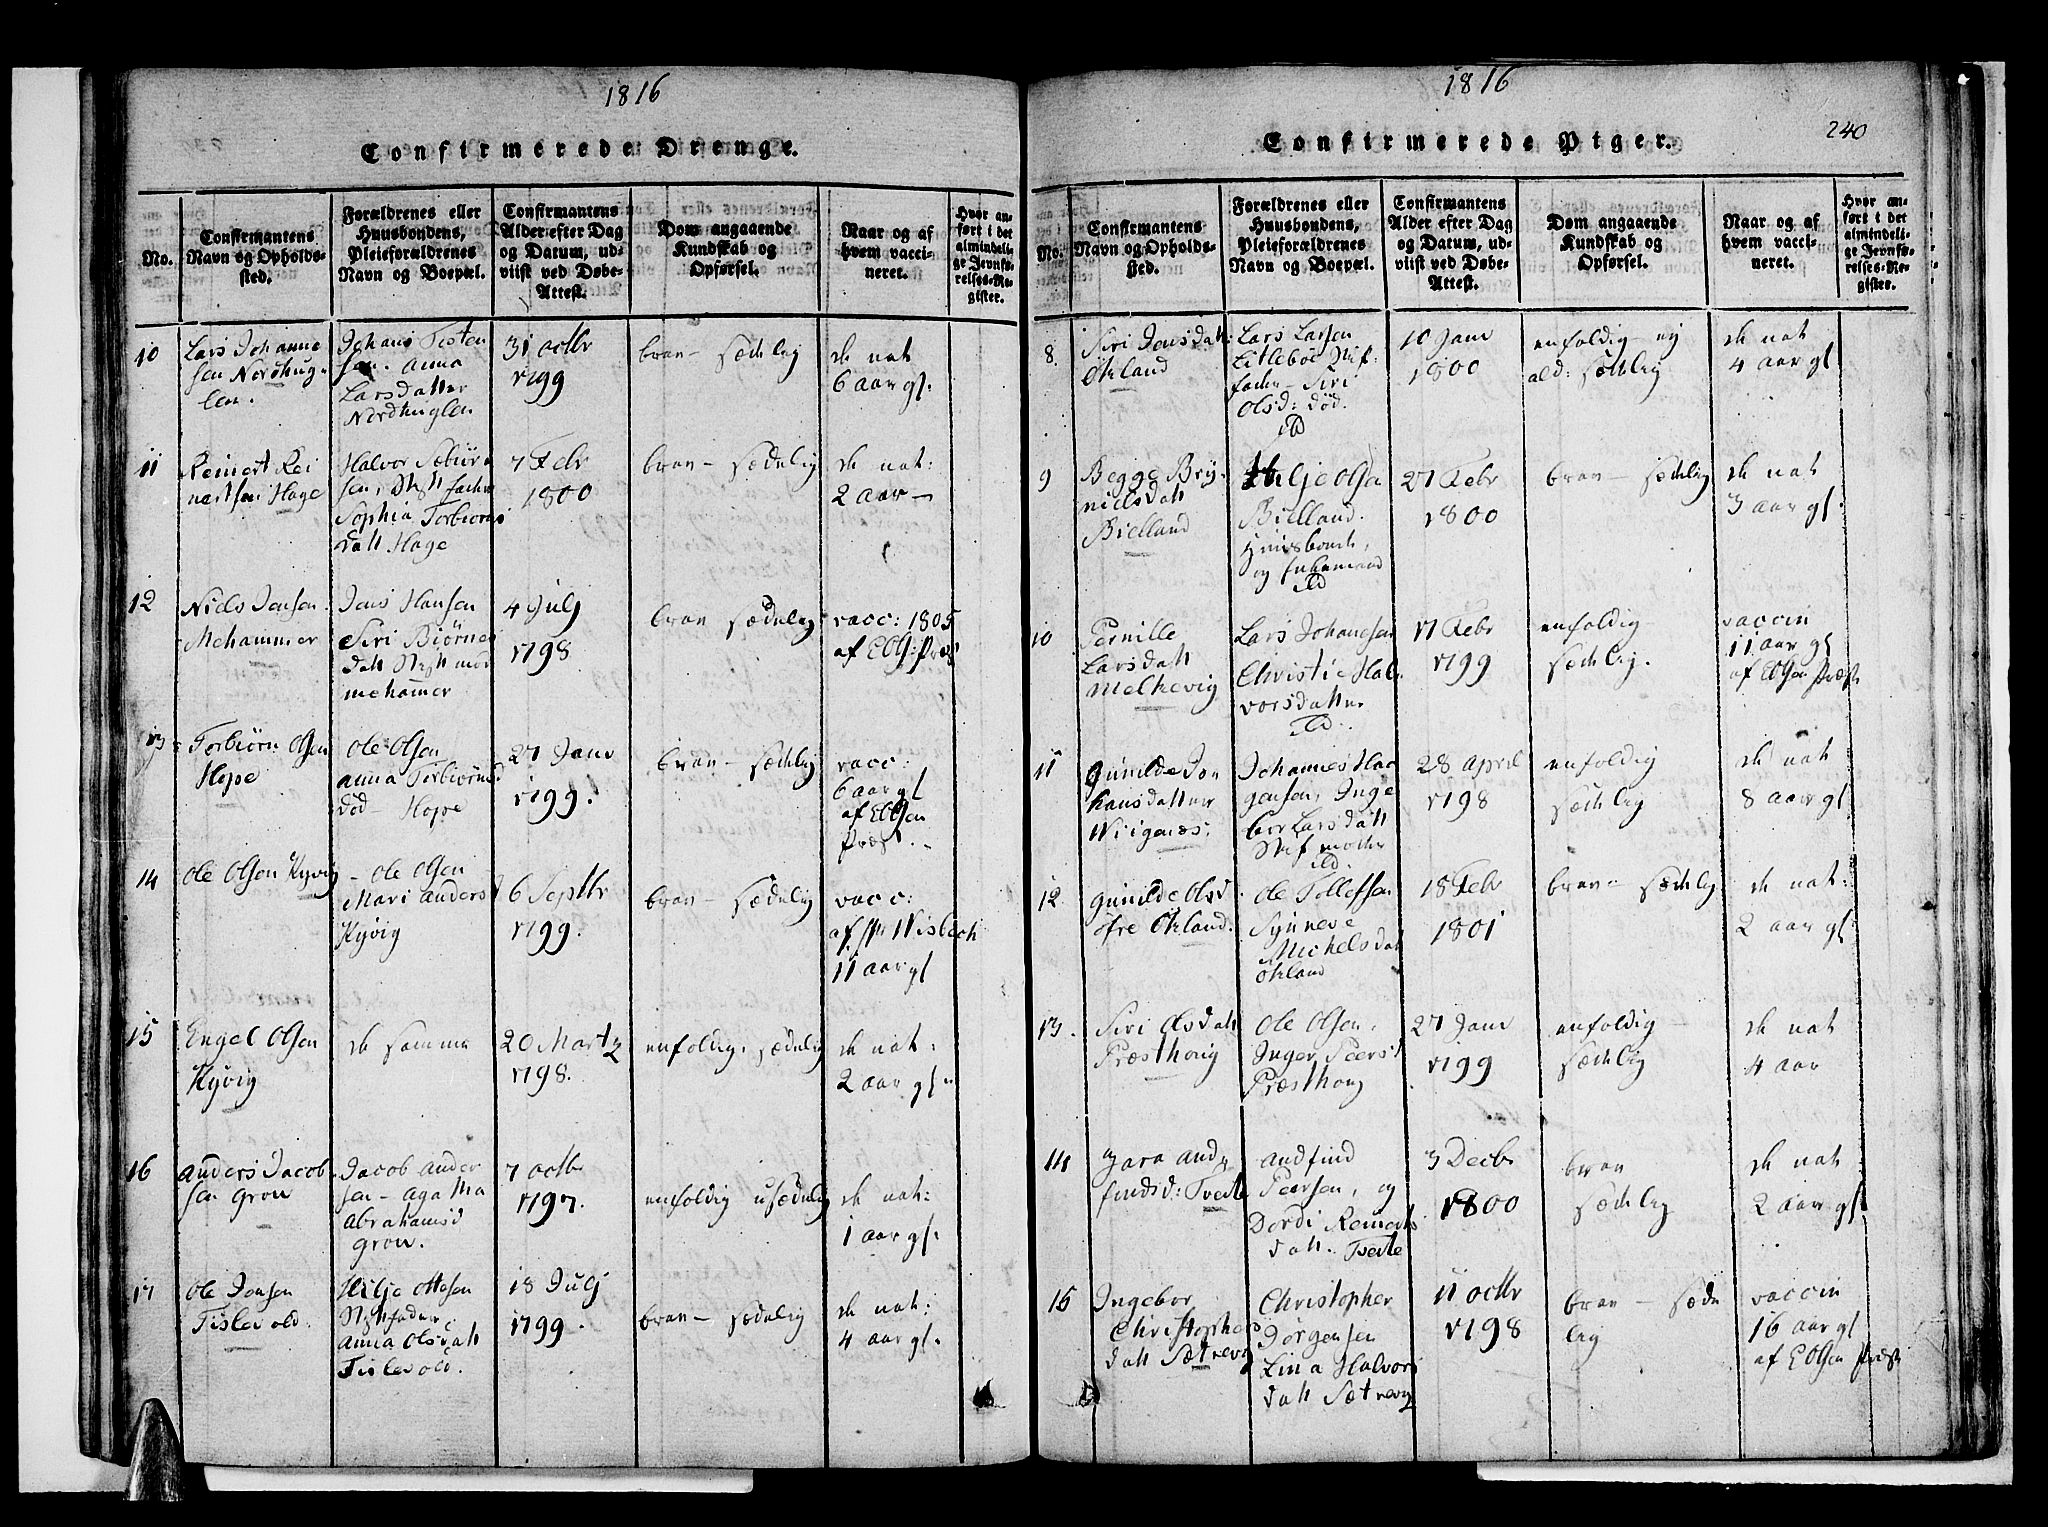 1816
Confirmerede Drenge.
No.
Confirmantens
Navn og Opholds-
sted.
Forældrenes eller
Huusbondens,
Pleieforældrenes
Navn og Boepæl.
Confirmantens
Alder efter Dag
og Datum, ud-
viist ved Døbe-
Attest.
Dom angaaende
Kundskab og
Opførsel.
Naar og af
hvem vacci-
neret.
Hvor an-
ført i det
almindeli-
ge Jevnfø-
relses-Re-
gister.
10
Lars Johanne
sen Nordhug-
len.
Johans Tosten
sen. Anna
Larsdatter
Nordhuglen
31 octbr
1799
brav - sædelig
de nat
6 aar gl.
11
Reinert Rei
nertsen Hage
Halvor Sæbiør
sen, Stif fader
Sophia Torbiørns
datt Hage
7 Febr
1800
brav - sædelig
de nat:
2 aar -
12
Niels Jensen
Mehammer
Jens Hansen
Siri Biørns
datt Stif mor
mehamer
4 Julj
1798
brav sædelig
vacc: 1805
af E Ols: Præs
13
Torbiørn Olsen
Hope
Ole Olsen
anna Torbiørnsd
død - Hope
27 Janr
1799.
brav - sædelig
vacc:
6 aar gl
af E Olsen
Præst.
14
Ole Olsen Kyvig
Ole Olsen
Mari Anders
Kyvig
6 Septbr
1799.
brav - sædelig
vacc:
af Hr Wisbech
11 aar gl
15
Engel Olsen
Kyvig
de samme
20 Martz
1798.
enfoldig, sædelig
de nat:
2 aar gl
16
Anders Jacob
sen Grov
Jacob Ander
sen - Aga Ma
Abrahamsd
Grov.
7 octb
1797.
enfoldig usædelig
de nat:
1 aar gl.
17
Ole Jensen
Tislevold.
Hilje Ottesen
Stiffader
Anna Olsdatt
Tislevold.
18 Julj
1799.
brav - sædelig
de nat:
4 aar gl.
1816
240
Confirmerede Piger.
No.
Confirmantens
Navn og Opholds-
sted.
Forældrenes eller
Huusbondens,
Pleieforældrenes
Navn og Boepæl.
Confirmantens
Alder efter Dag
og Datum, ud-
viist ved Døbe-
Attest.
Dom angaaende
Kundskab og
Opførsel.
Naar og af
hvem vacci-
neret.
Hvor an-
ført i det
almindeli-
ge Jevnfø-
relses-Re-
gister.
8
Siri Jensdatt
Økland
Lars Larsen
Litleboe Stif:
fader - Siri
Olsd: død.
10 Janr
1800
enfoldig - og
ald: sædelig
de nat
4 aar gl
9
Begge Bry-
nielsdatt
Bielland
Hilje Olsen
Bielland.
Huusbonde,
og
27 Febr
1800
brav - sædelig
de nat
3 aar gl.
10
Pernille
Larsdatt
Melkevig
Lars Johansen
Christie Hal-
vorsdatter
17 Febr
1799
enfoldig
sædelig.
vaccin
11 aar gl
af E Olsen Præst
11
Gunilde Jo
hansdatter
Wiigenæs
Johannes Haa
gensen, Inge
bor Larsdatt
Stif moder
28 april
1798
enfoldig
sædelig
de nat
8 aar gl
12
Gunilde Olsd
Øfre Økland.
Ole Tollefsen
Synneve
Michelsdat
Økland
18 Febr
1801
brav - sædelig
de nat:
2 aar gl
13.
Siri Olsdatt
Præsthoug
Ole Olsen,
Inger Peersd
Præsthoug
27 Janr
1799
enfoldig -
sædelig
de nat
4 aar
14
Zara and
findsd: Tvedte
Andfind
Peersen, og
Dordi Reinerts
datt. Tvedte
3 Decbr
1800
brav
sædelig
de nat
2 aar gl.
15
Ingebor
Christophers
datt Sætrevig
Christopher
Jørgensen
Zina Halvors
datt Sætrevig
11 octbr
1798
brav - sæde
lig
vaccin
16 aar gl
af E Olsen Præst